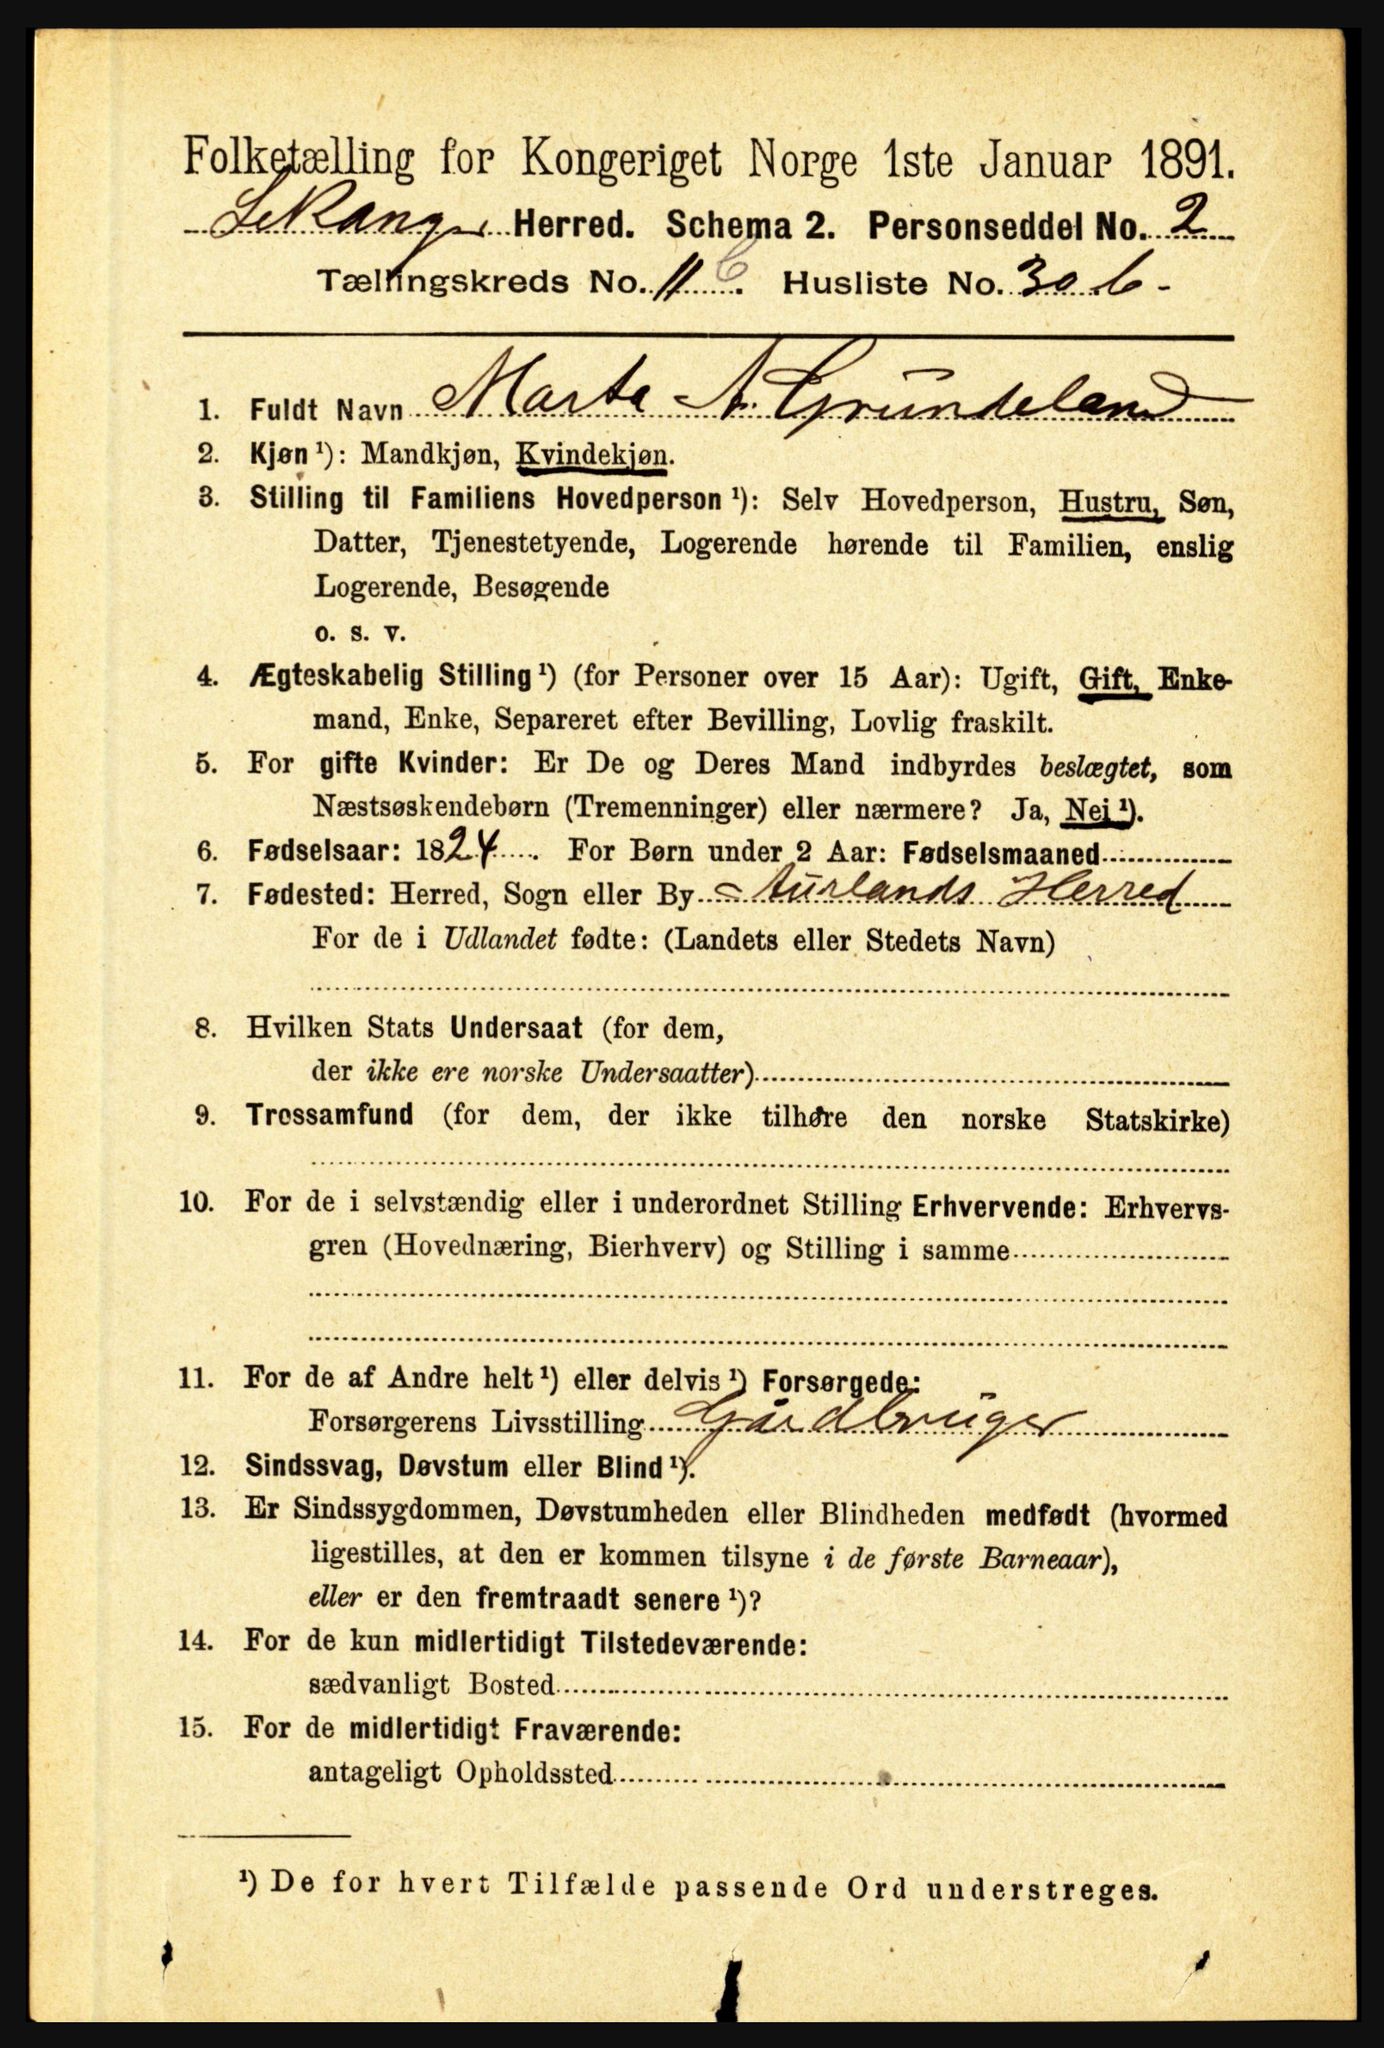 Folketælling for Kongeriget Norge 1ste Januar 1891.
Leikanger Herred. Schema 2. Personseddel No. 2
Tællingskreds No. 11 Husliste No. 30 b
1. Fuldt Navn Marta A. Grindeland
2. Kjøn ¹): Mandkjøn, Kvindekjøn.
3. Stilling til Familiens Hovedperson ¹): Selv Hovedperson, Hustru, Søn,
Datter, Tjenestetyende, Logerende hørende til Familien, enslig
Logerende, Besøgende
o. s. v.
4. Ægteskabelig Stilling ¹) (for Personer over 15 Aar): Ugift, Gift, Enke-
mand, Enke, Separeret efter Bevilling, Lovlig fraskilt.
5. For gifte Kvinder: Er De og Deres Mand indbyrdes beslægtet, som
Næstsøskendebørn (Tremenninger) eller nærmere? Ja, Nej ¹).
6. Fødselsaar: 1824. For Børn under 2 Aar: Fødselsmaaned
7. Fødested: Herred, Sogn eller By Aurlands Herred
For de i Udlandet fødte: (Landets eller Stedets Navn)
8. Hvilken Stats Undersaat (for dem,
der ikke ere norske Undersaatter)
9. Trossamfund (for dem, der ikke tilhøre den norske Statskirke)
10. For de i selvstændig eller i underordnet Stilling Erhvervende: Erhvervs-
gren (Hovednæring, Bierhverv) og Stilling i samme
11. For de af Andre helt ¹) eller delvis ¹) Forsørgede:
Forsørgerens Livsstilling Gårdbruger
12. Sindssvag, Døvstum eller Blind ¹).
13. Er Sindssygdommen, Døvstumheden eller Blindheden medfødt (hvormed
ligestilles, at den er kommen tilsyne i de første Barneaar),
eller er den fremtraadt senere ¹)?
14. For de kun midlertidigt Tilstedeværende:
sædvanligt Bosted
15. For de midlertidigt Fraværende:
antageligt Opholdssted
¹) De for hvert Tilfælde passende Ord understreges.